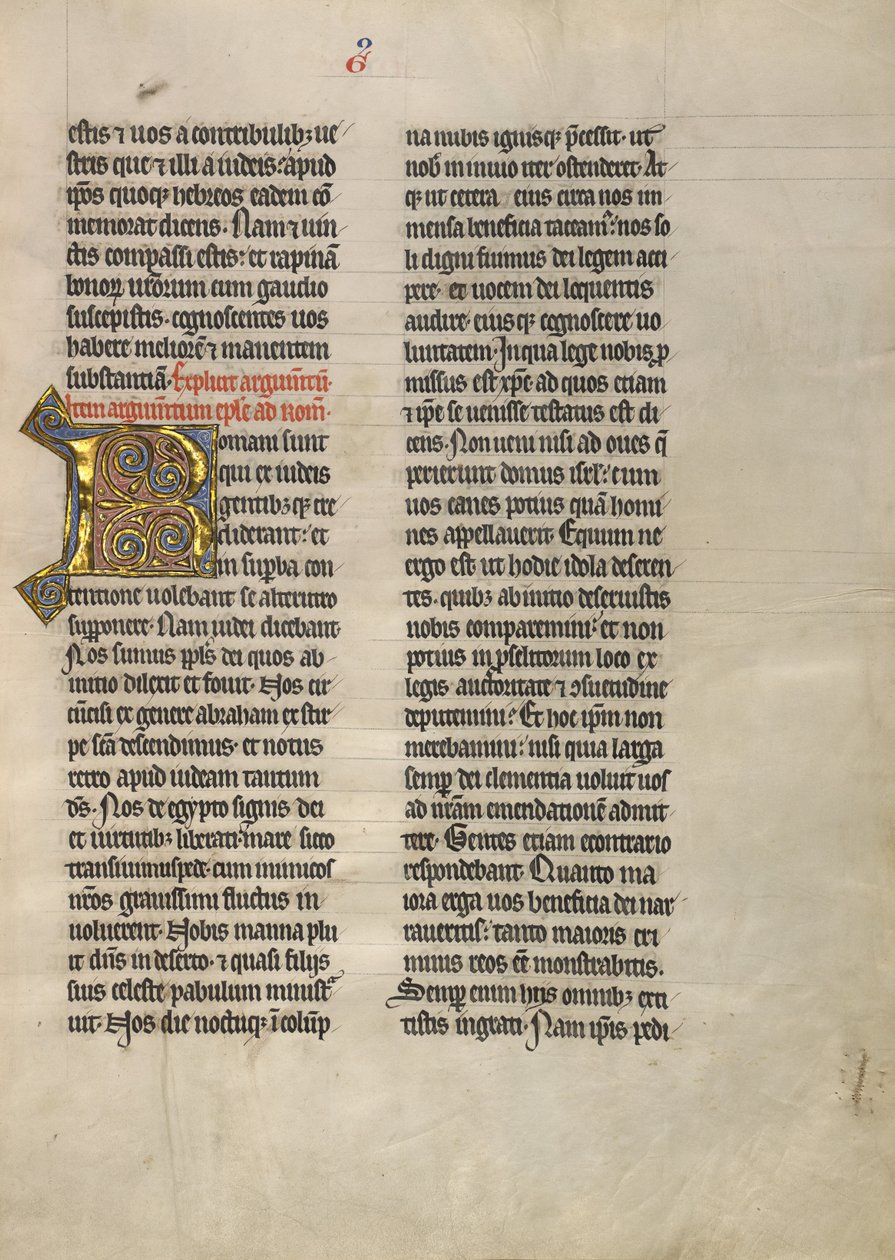 2
6
estis ⁊ uos a contribulibꝫ ue
stris que ⁊ illi a iudeis: apud
ip̄os quoqꝫ hebreos eadem cō
memorat dicens. Nam ⁊ uin
ctis compassi estis: et rapinā
bonoꝝ ur̄orum cum gaudio
suscepistis. cognoscentes uos
habere meliorē ⁊ manentem
substantiā. Explicit argum̄tū.
Item argum̄tum ep̄le ad Rom̄.
Romani sunt
qui ex iudeis
gentibꝫ qꝫ cre
diderant: et
in suꝑba con
tentione uolebant se alterutro
supponere. Nam iudei dicebant.
Nos sumus ppl̄s dei quos ab
initio dilexit et fouit. Nos cir
cūcisi ex genere abraham ex stir
pe sc̄a descendimus. et notus
retro apud iudeam tantum
ds̄. Nos de egypto signis dei
et uirtutibꝫ liberati. mare sicco
transiuimus pede. cum inimicos
nr̄os grauissimi fluctus in
uoluerent. Nobis manna plu
it dn̄s in deserto. ⁊ quasi filijs
suis celeste pabulum ministᵃ
uit. Nos die noctuqꝫ ī colūp
na nubis ignisqꝫ p̄cessit. ut
nob̄ in inuio iter ostenderet. At
qꝫ ut cetera eius circa nos im
mensa beneficia taceam᷒: nos so
li digni fuimus dei legem acci
pere. et uocem dei loquentis
audire. eiusqꝫ cognoscere uo
luntatem. In qua lege nobis ꝓ
missus est xp̄c ad quos etiam
⁊ ip̄e se uenisse testatus est di
cens. Non ueni nisi ad oues q̄
perierunt domus isrl̄: cum
uos canes potius quā homi
nes appellauerit. Equum ne
ergo est. ut hodie idola deseren
tes. quibꝫ ab initio deseruistis
nobis comparemini: et non
potius in ꝓselitorum loco ex
legis auctoritate ⁊ ꝯsuetudine
deputemini? Et hoc ip̄m non
merebamini: nisi quia larga
semꝑ dei clementia uoluit uos
ad nr̄am emendationē admit
tere. Gentes etiam econtrario
respondebant. Quanto ma
iora erga uos beneficia dei nar
raueritis: tanto maioris cri
minis reos eē monstrabitis.
Semꝑ enim hijs omnibꝫ exti
tistis ingrati. Nam ip̄is pedi